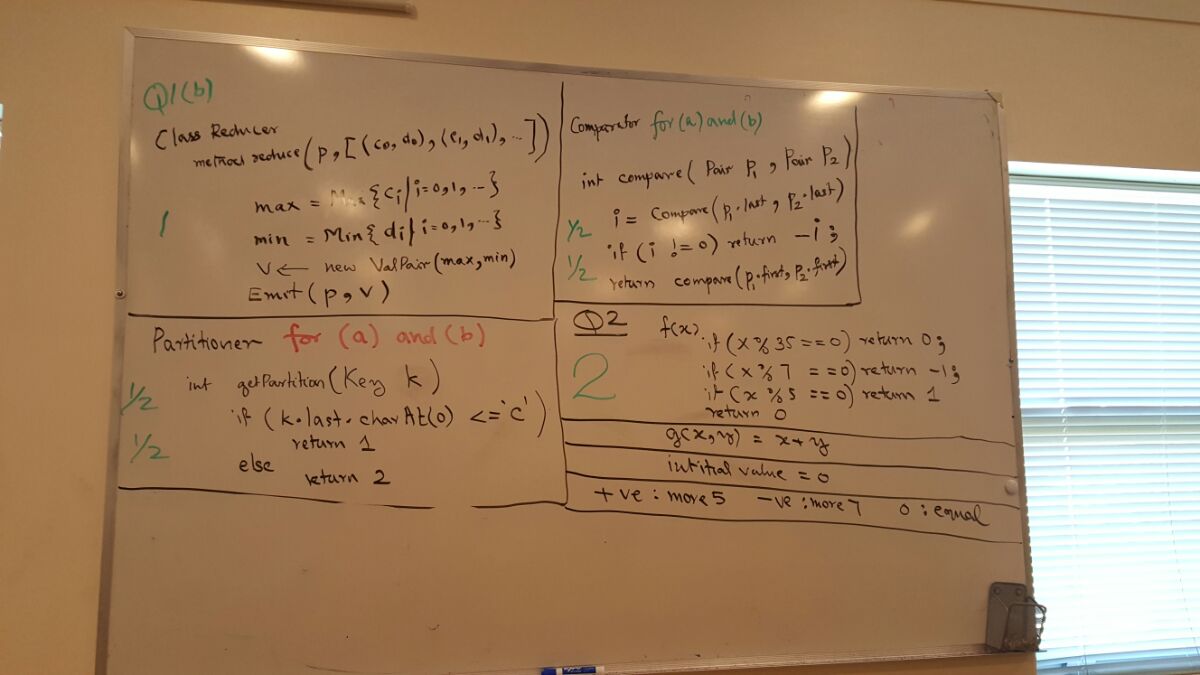 Q1(b)
Class Reducer
method reduce(p, [(c0, d0), (c1, d1), ...])
max = Max{ci/i=0,1, ...}
1
min = Min{di/i=0,1, ...}
V ← new ValPair(max, min)
Emit(p, v)
Comparator for (a) and (b)
int compare(Pair P1, Pair P2)
1/2 i = Compare(P1.last, P2.last)
if (i != 0) return -i;
1/2 return compare(P1.first, P2.first)
Partitioner for (a) and (b)
int getPartition(Key k)
1/2 if (k.last.charAt(0) <= 'c')
1/2 return 1
else
return 2
Q2 f(x)
if (x % 35 == 0) return 0;
2 if (x % 7 == 0) return -1;
if (x % 5 == 0) return 1
return 0
g(x, y) = x + y
intitial value = 0
+ve : more 5 -ve : more 7 0 : equal